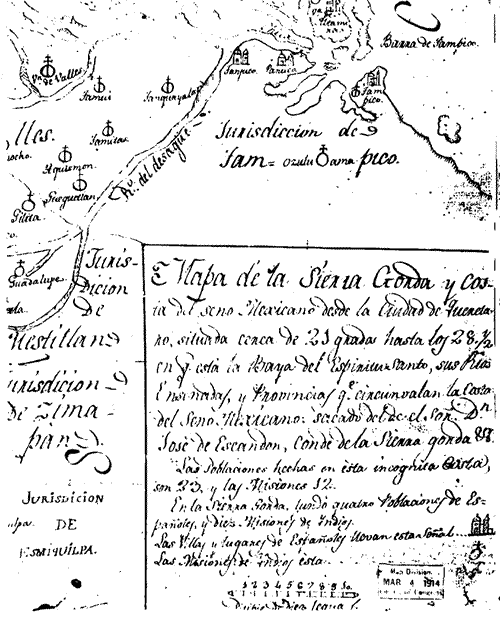 Barra de Tampico.
Va. de Valles
Tamui
Tanquayalap
Tanpico.
Panuco
Tam
pico.
lles.
Tamitas
Rº. del desague
Jurisdiccion de
Tam = ozulu ama pico.
Aquismon.
Gueguetlan
Gilita
Guadalupe
Juris-
dicion
De
Guestillan
Jurisdicion
De Zima-
pan.
JURISDICION
DE
ESMIQUILPA.
Mapa de la Sierra Gorda y Cos-
ta del seno Mexicano desde la Ciudad de Quereta-
ro, situada cerca de 21 grados hasta los 28 1/2
en q. está la Baya del Espiritu Santo, sus Rios
Ensenadas, y Provincias q.e circunvalan la Costa
del Seno Mexicano: sacado del de el Señ.r Dn.
José de Escandon, Conde de la Sierra gorda &.
Las Poblaciones hechas en esta incognita Costa,
son 23, y las Misiones 12.
En la Sierra Gorda, fundó quatro Poblaciones de Es-
pañoles, y diez Misiones de Indios.
Las Villas y lugares de Españoles llevan esta Señal
Las Misiones de Indios esta
1 2 3 4 5 6 7 8 9 10.
Map Division
MAR 4 1914
Library of Congress